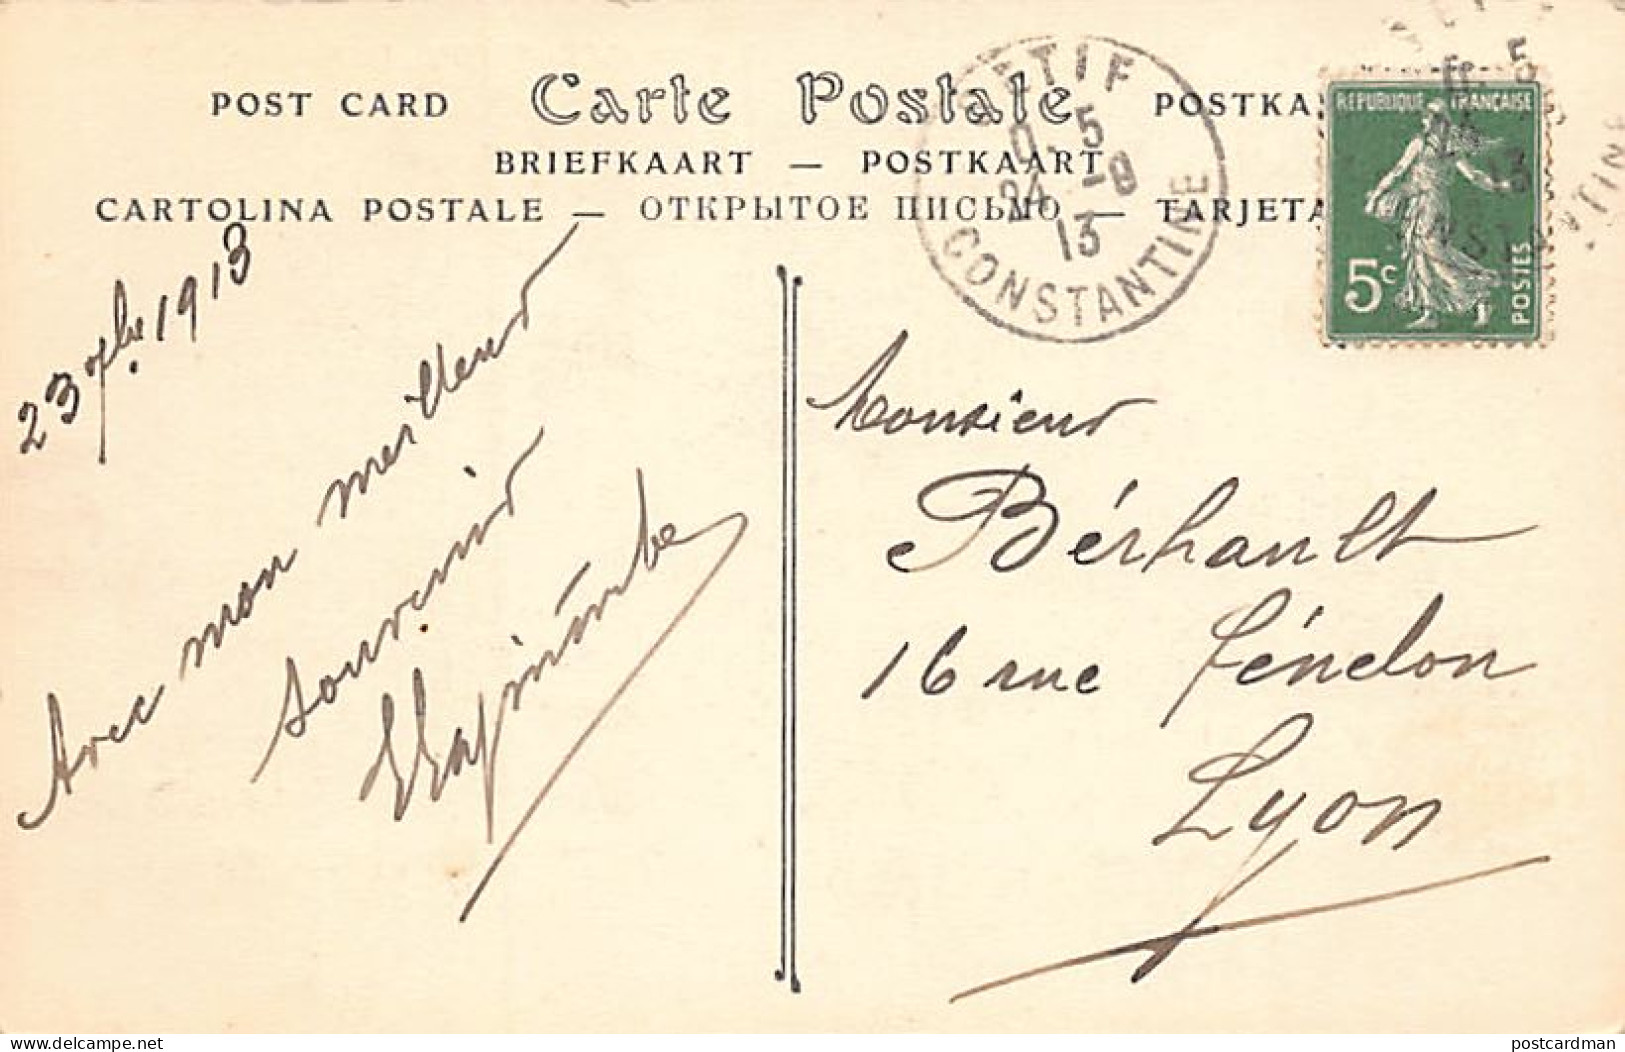 POST CARD Carte Postale POSTKA
BRIEFKAART — POSTKAART
CARTOLINA POSTALE — ОТКРЫТОЕ ПИСЬМО — TARJETA
SETIF
5
24 -9
13
CONSTANTINE
REPUBLIQUE FRANÇAISE
5c
POSTES
23 7bre 1913
Avec mon meilleur
souvenir
Monsieur
Bérhault
16 rue Fénelon
Lyon
delcampe.net
postcardman